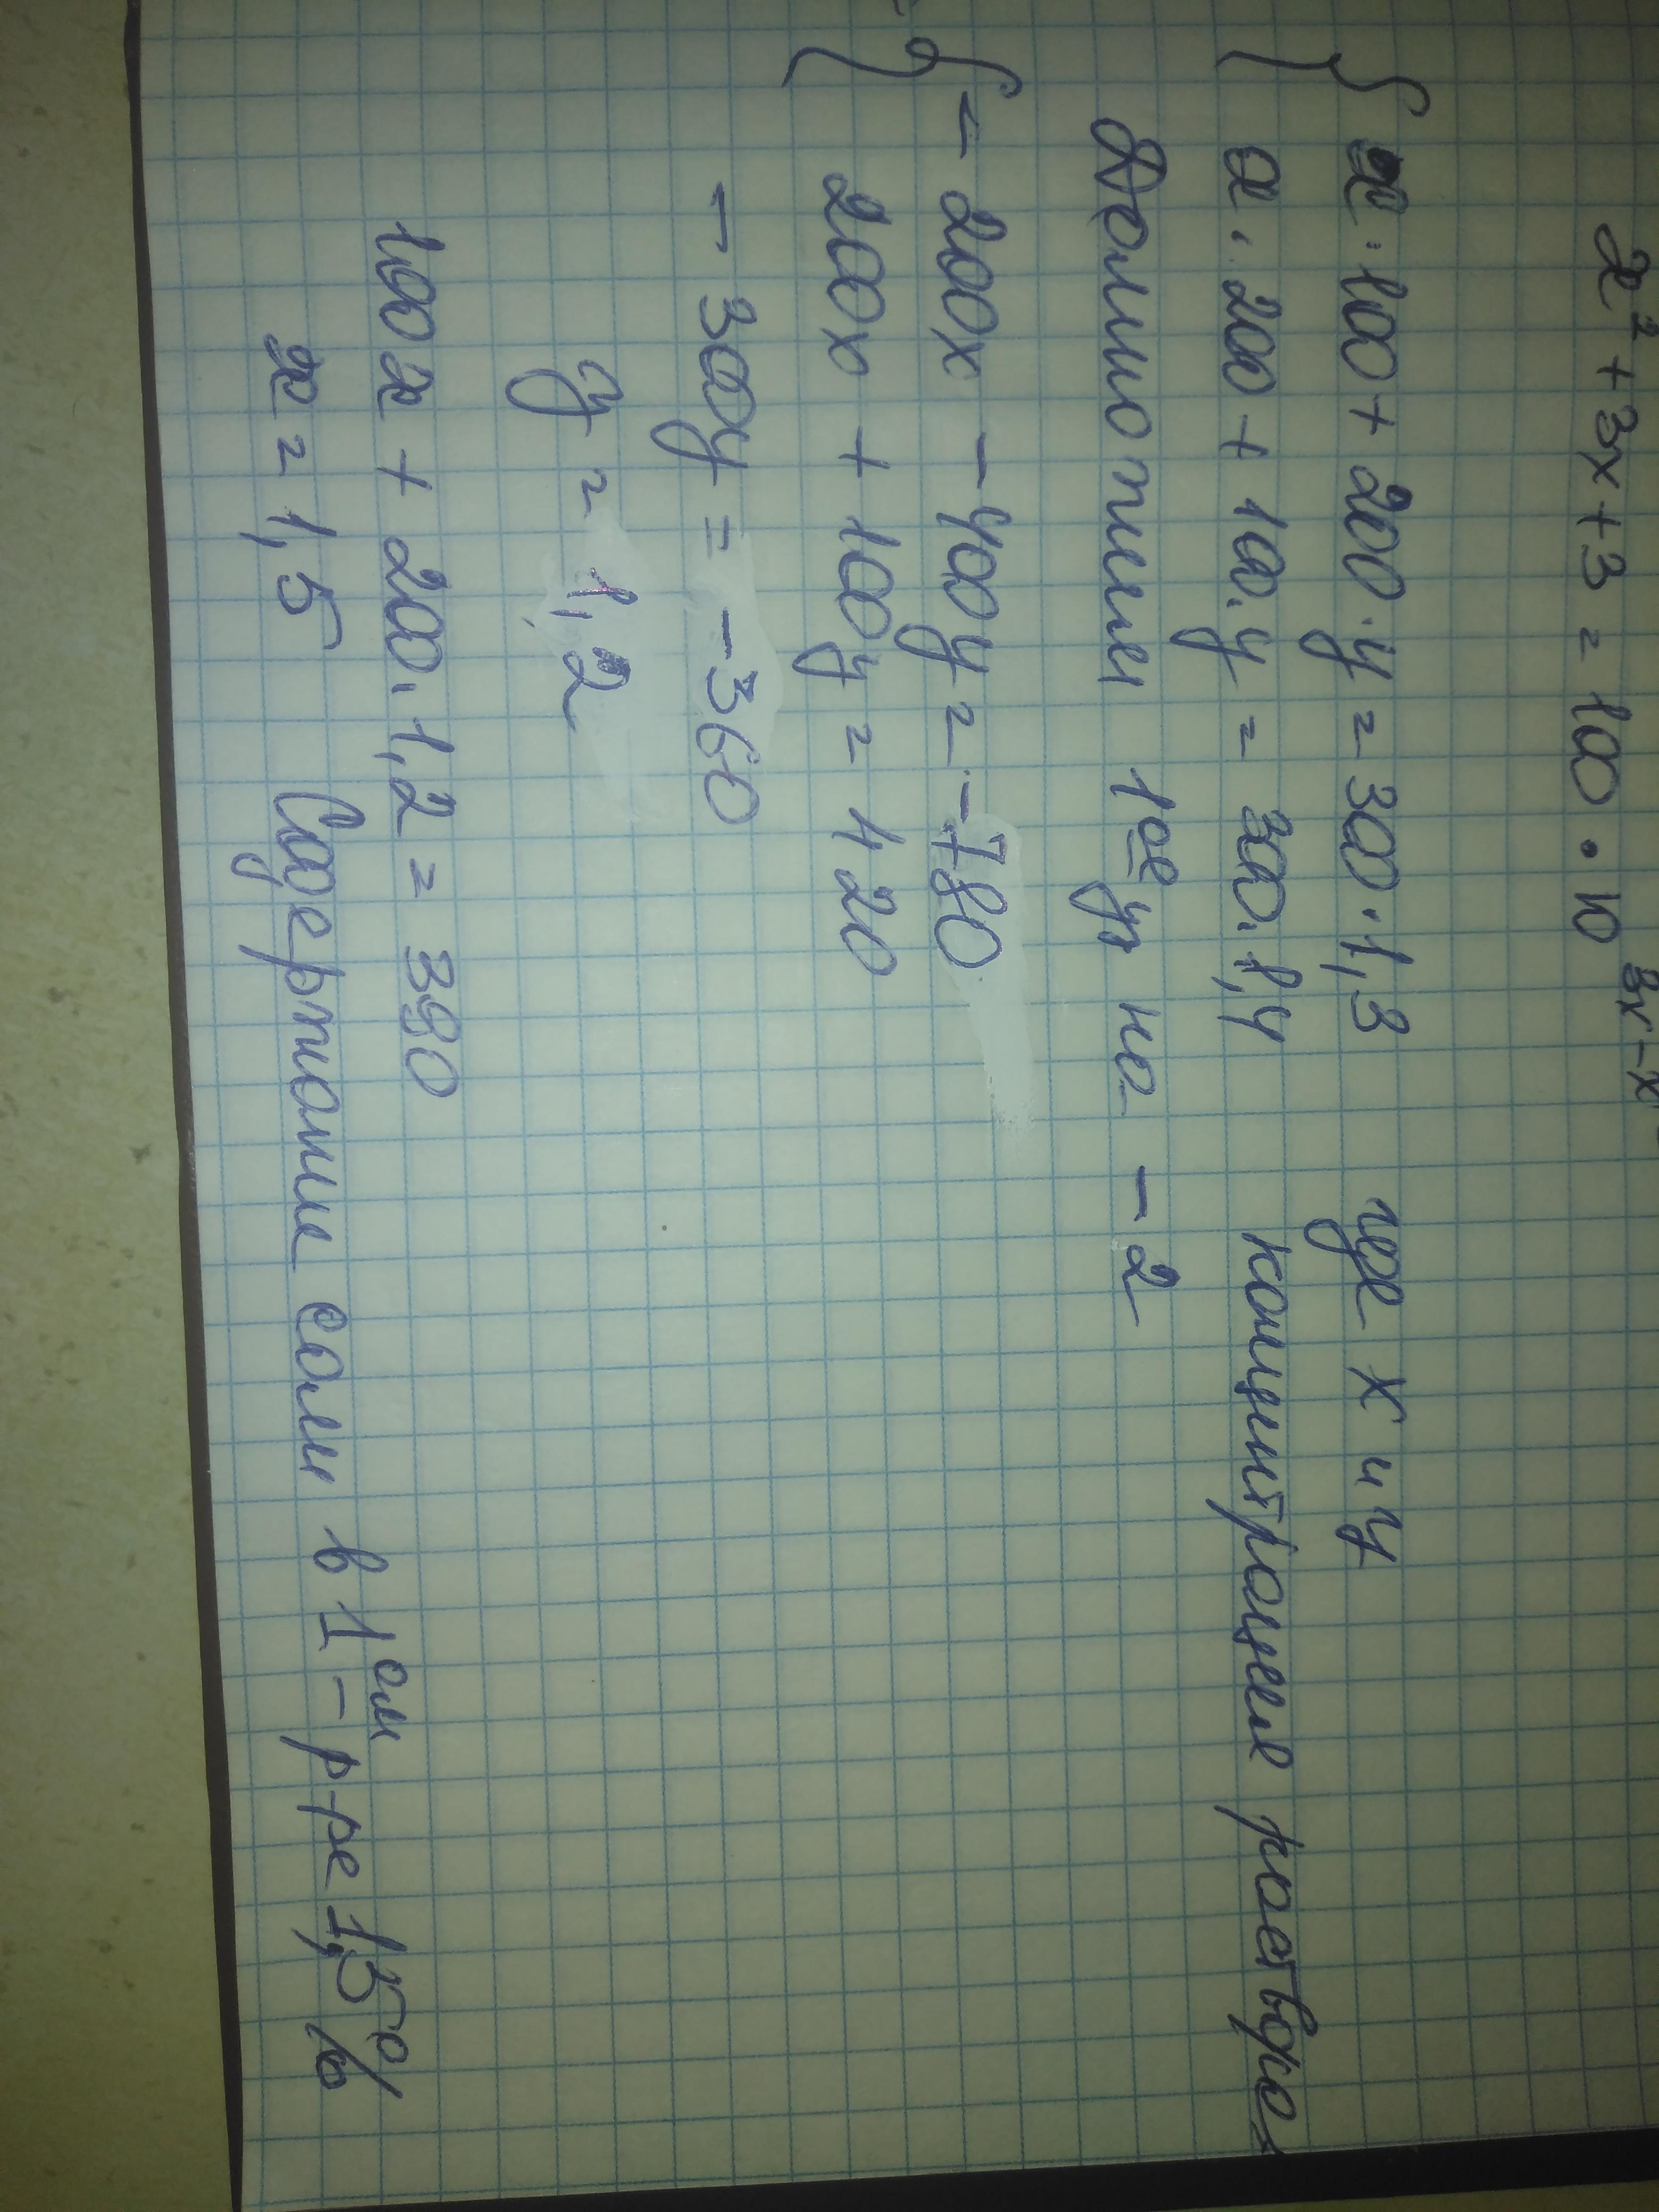 x² + 3x + 3 = 100 · 10 3x - x
x · 100 + 200 · y = 300 · 1,3 где x и y
x · 200 + 100 · y = 300 · 1,4 концентрация раствора
Домножим 1ое ур на -2
- 200x - 400y = -780
200x + 100y = 420
- 300y = -360
y = 1,2
100x + 200 · 1,2 = 390
x = 1,5 Содержание соли в 1ом - р-ре 1,5%